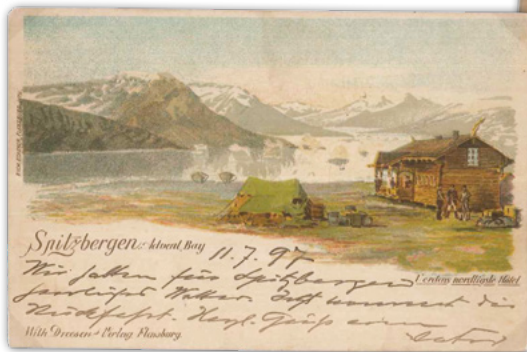 Spitzbergen: Advent Bay
11.7.97
Verdens nordligste Hôtel
Wir hatten für Spitzbergen
Wetter. Jetzt kommt die
Rückfahrt. Herzl. Gruß
Wilh. Dreesen's Verlag Flensburg.